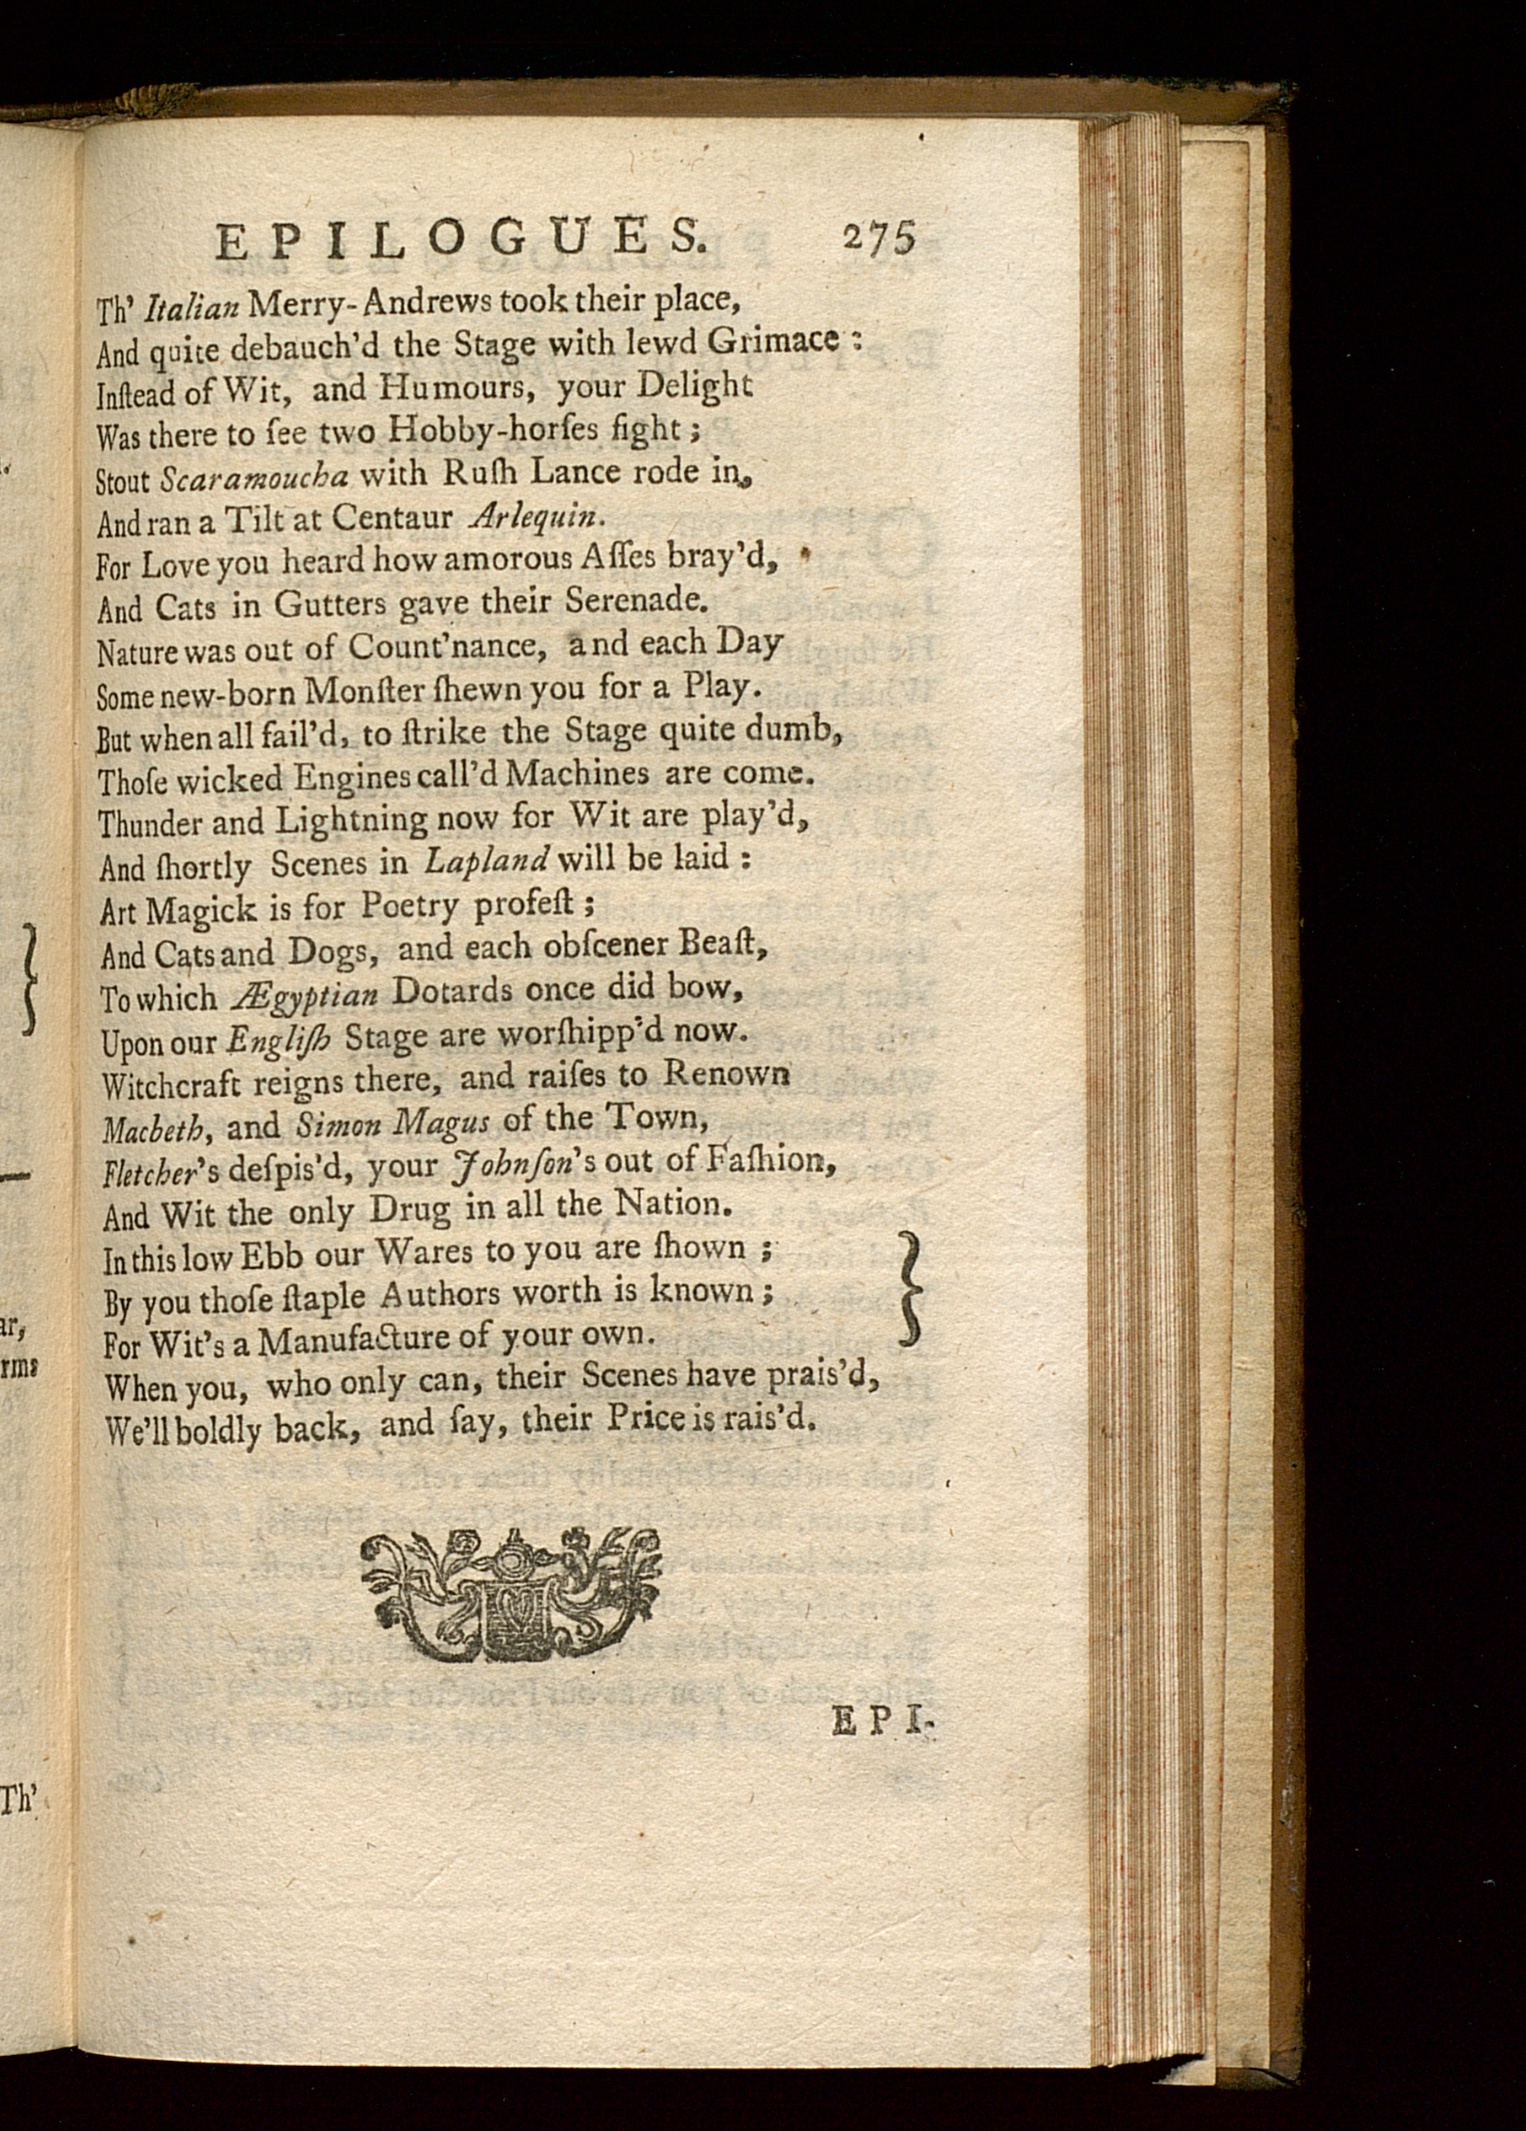 EPILOGUES. 275
Th' Italian Merry-Andrews took their place,
And quite debauch'd the Stage with lewd Grimace :
Inſtead of Wit, and Humours, your Delight
Was there to ſee two Hobby-horſes fight ;
Stout Scaramoucha with Ruſh Lance rode in,
And ran a Tilt at Centaur Arlequin.
For Love you heard how amorous Aſſes bray'd,
And Cats in Gutters gave their Serenade.
Nature was out of Count'nance, and each Day
Some new-born Monſter ſhewn you for a Play.
But when all fail'd, to ſtrike the Stage quite dumb,
Thoſe wicked Engines call'd Machines are come.
Thunder and Lightning now for Wit are play'd,
And ſhortly Scenes in Lapland will be laid :
Art Magick is for Poetry profeſt ;
And Cats and Dogs, and each obſcener Beaſt,
To which Ægyptian Dotards once did bow,
Upon our Engliſh Stage are worſhipp'd now.
Witchcraft reigns there, and raiſes to Renown
Macbeth, and Simon Magus of the Town,
Fletcher's deſpis'd, your Johnſon's out of Faſhion,
And Wit the only Drug in all the Nation.
In this low Ebb our Wares to you are ſhown ;
By you thoſe ſtaple Authors worth is known ;
For Wit's a Manufacture of your own.
When you, who only can, their Scenes have prais'd,
We'll boldly back, and ſay, their Price is rais'd.
EPI-
Th'